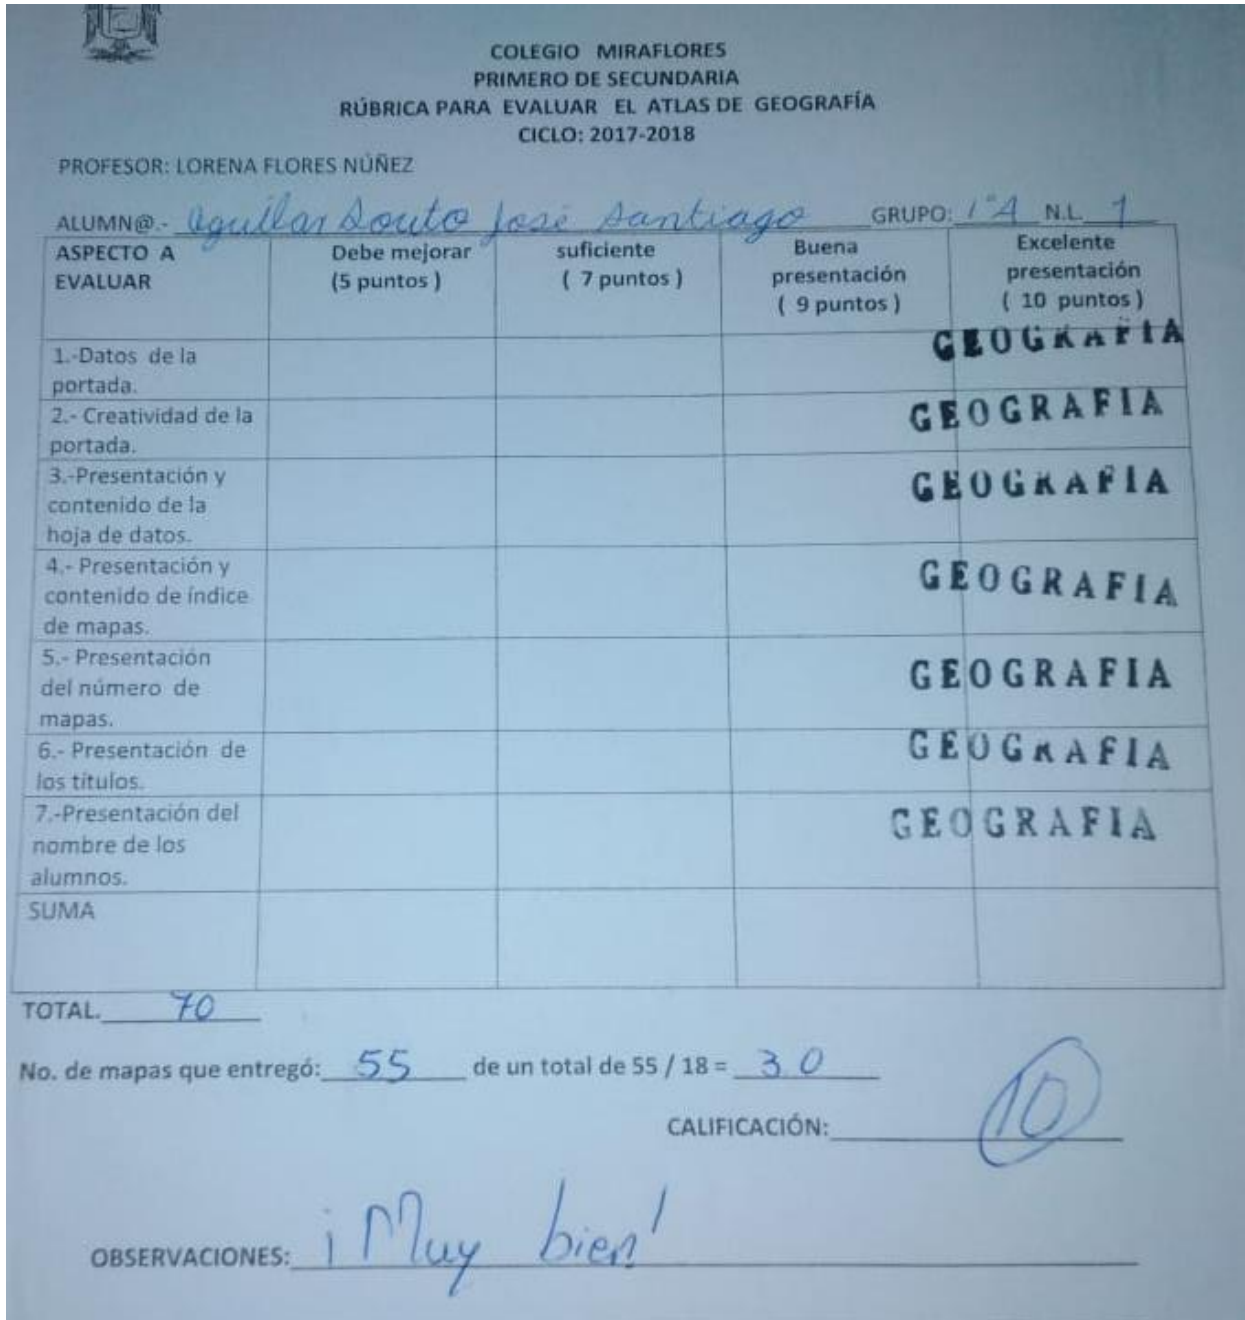 COLEGIO MIRAFLORES
PRIMERO DE SECUNDARIA
RÚBRICA PARA EVALUAR EL ATLAS DE GEOGRAFÍA
CICLO: 2017-2018
PROFESOR: LORENA FLORES NÚÑEZ
ALUMN@.- Aguilar Souto José Santiago GRUPO: 1°A N.L. 1
ASPECTO A EVALUAR Debe mejorar (5 puntos ) suficiente ( 7 puntos ) Buena presentación ( 9 puntos ) Excelente presentación ( 10 puntos )
1.-Datos de la
portada.
GEOGRAFIA
2.- Creatividad de la
portada.
GEOGRAFIA
3.-Presentación y
contenido de la
hoja de datos.
GEOGRAFIA
4.- Presentación y
contenido de índice
de mapas.
GEOGRAFIA
5.- Presentación
del número de
mapas.
GEOGRAFIA
6.- Presentación de
los títulos.
GEOGRAFIA
7.-Presentación del
nombre de los
alumnos.
GEOGRAFIA
SUMA
TOTAL. 70
No. de mapas que entregó: 55 de un total de 55 / 18 = 3.0
CALIFICACIÓN: 10
OBSERVACIONES: ¡Muy bien!